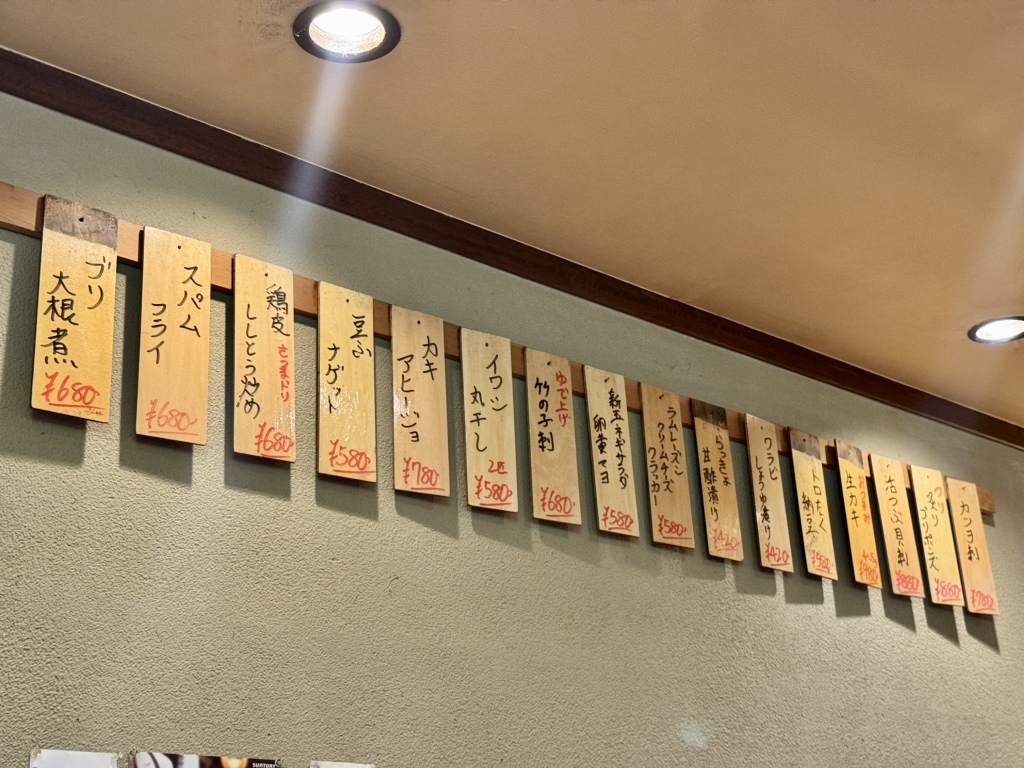 ブリ
大根煮
¥680-
スパム
フライ
¥680-
鶏皮
さつまドリ
ししとう炒め
¥680-
豆ふ
ナゲット
¥580-
カキ
アヒージョ
¥780-
イワシ
丸干し
2匹
¥580-
ゆで上げ
竹の子刺
¥680-
新玉ネギサラダ
卵黄マヨ
¥580-
ラムレーズン
クリームチーズ
クラッカー
¥580-
らっきょ
甘酢漬け
¥420-
ワラビ
しょうゆ漬け
¥420-
トロたく
納豆
¥580-
生カキ
活つぶ貝刺
¥880-
ブリポンズ
¥880-
カツヲ刺
¥780-
SUNTORY